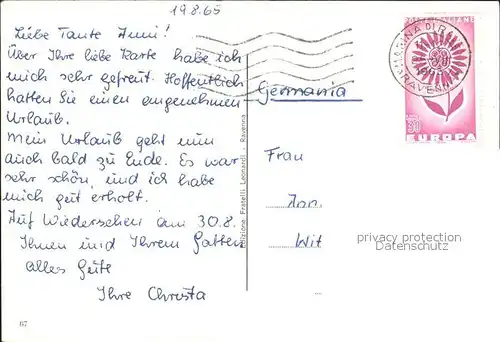 19.8.65
Liebe Tante Anni!
Über Ihre liebe Karte habe ich
mich sehr gefreut. Hoffentlich
hatten Sie einen angenehmen
Urlaub.
Mein Urlaub geht nun
auch bald zu Ende. Es war
sehr schön, und ich habe
mich gut erholt.
Auf Wiedersehen am 30.8.
Ihnen und Ihrem Gatten
alles Gute
Ihre Christa
67
Edizione Fratelli Leonardi - Ravenna
MARINA DI
RAVENNA
EUROPA
Germania
Frau
Wit
privacy protection
watermark